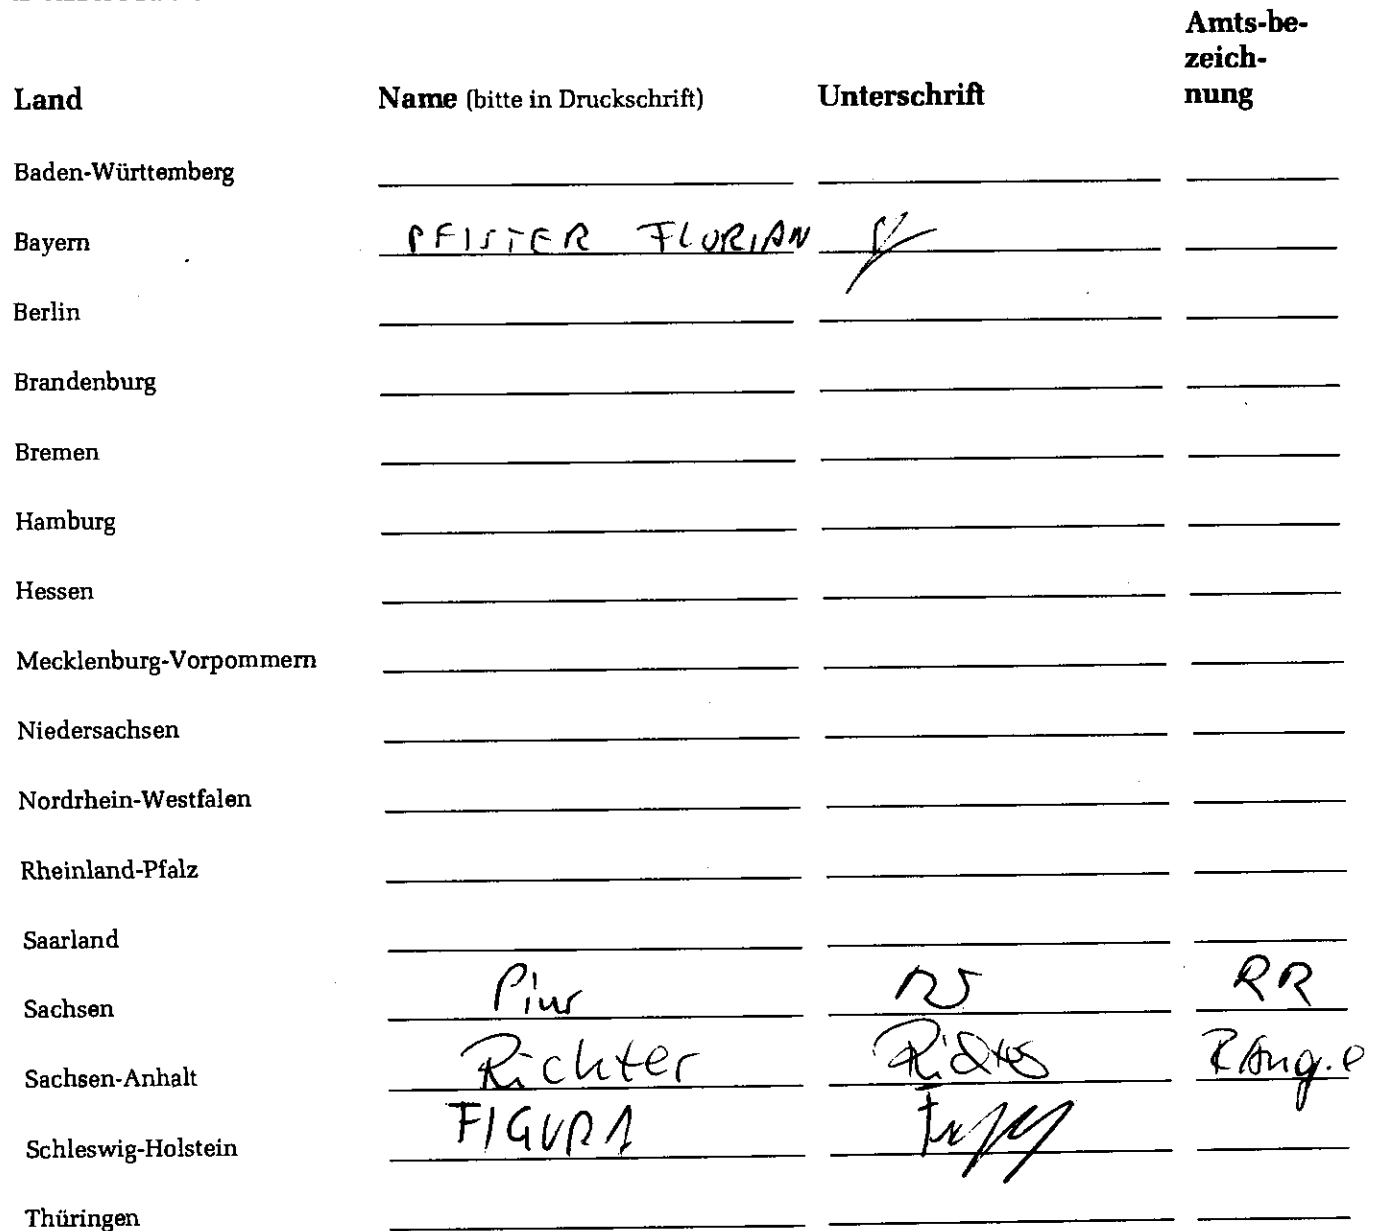 Land Name (bitte in Druckschrift) Unterschrift Amts-be-
zeich-
nung
Baden-Württemberg
Bayern PFISTER FLORIAN
Berlin
Brandenburg
Bremen
Hamburg
Hessen
Mecklenburg-Vorpommern
Niedersachsen
Nordrhein-Westfalen
Rheinland-Pfalz
Saarland
Sachsen RR
Sachsen-Anhalt Richter Richter
Schleswig-Holstein FIGURA
Thüringen